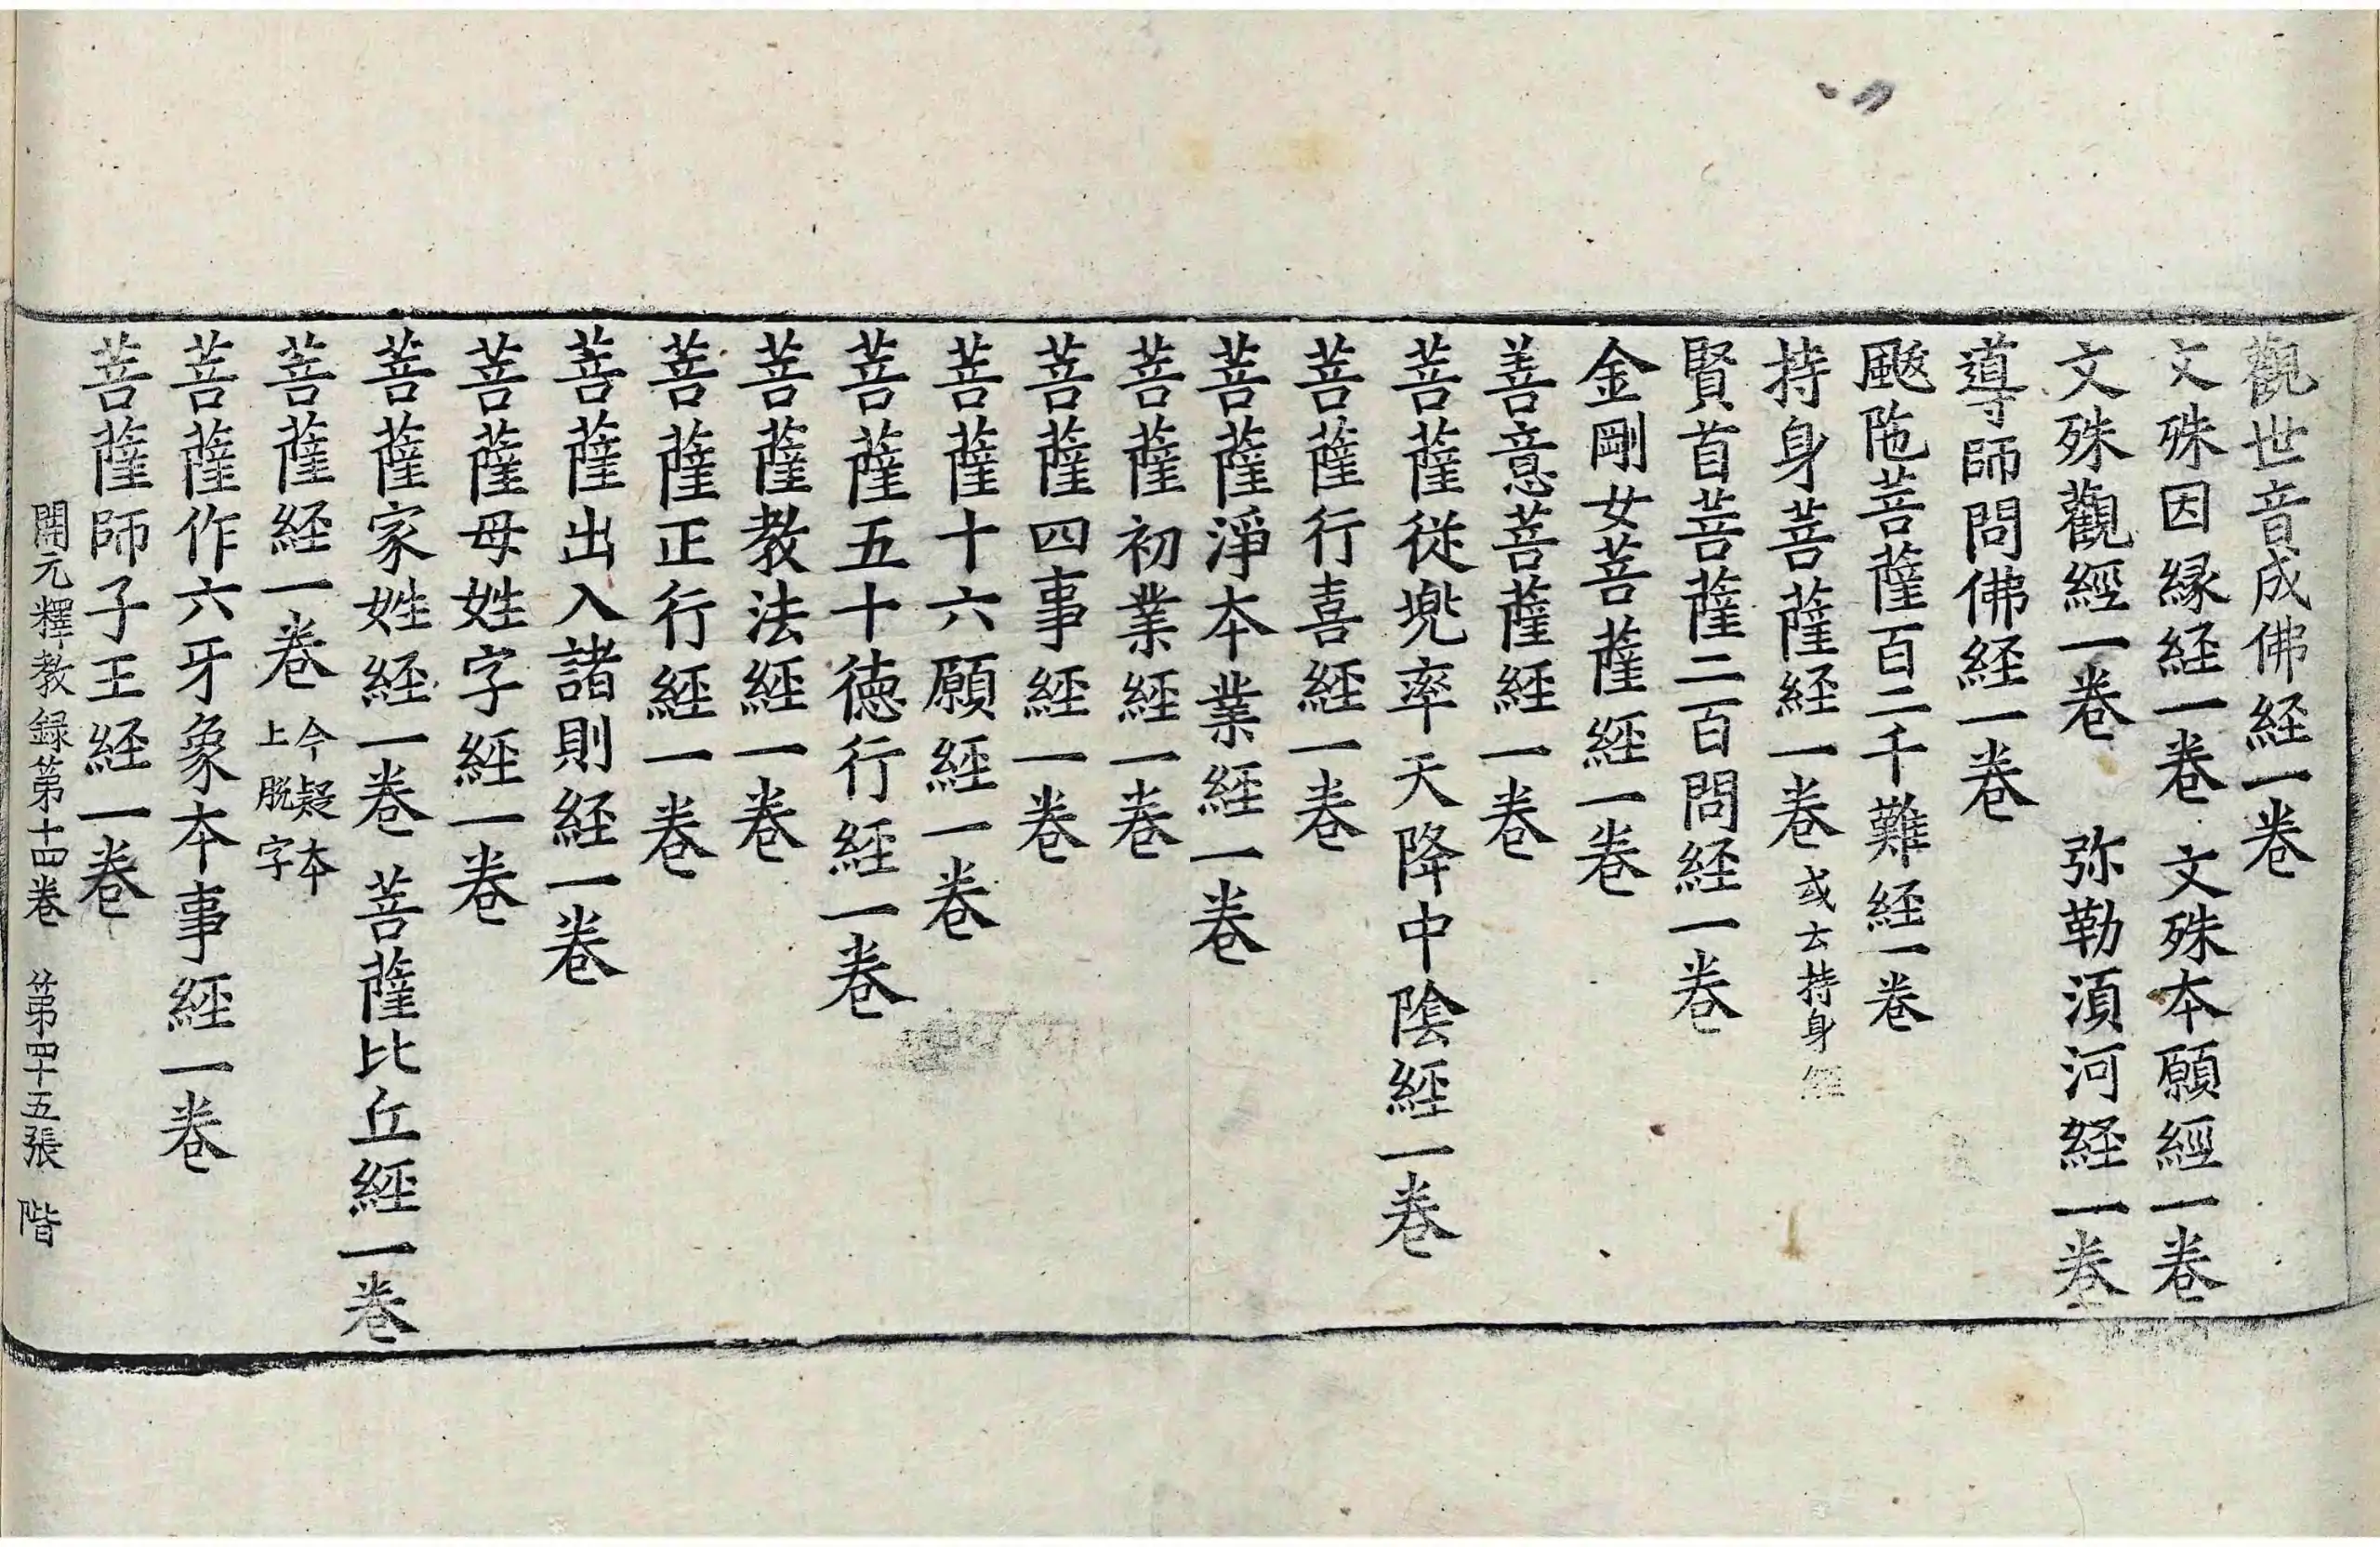 觀世音成佛経一卷
文殊因縁経一卷　文殊本願經一卷
文殊觀經一卷　弥勒湏河経一卷
導師問佛経一卷
颰陁菩薩百二千難経一卷
持身菩薩経一卷 或云持身經
賢首菩薩二百問経一卷
金剛女菩薩経一卷
善意菩薩経一卷
菩薩従兠率天降中陰経一卷
菩薩行喜経一卷
菩薩淨本業経一卷
菩薩初業経一卷
菩薩四事経一卷
菩薩十六願経一卷
菩薩五十德行経一卷
菩薩教法経一卷
菩薩正行経一卷
菩薩出入諸則経一卷
菩薩母姓字経一卷
菩薩家姓経一卷　菩薩比丘経一卷
菩薩経一卷 今疑本上脫字
菩薩作六牙象本事経一卷
菩薩師子王経一卷
開元釋教録第十四卷　第四十五張　階